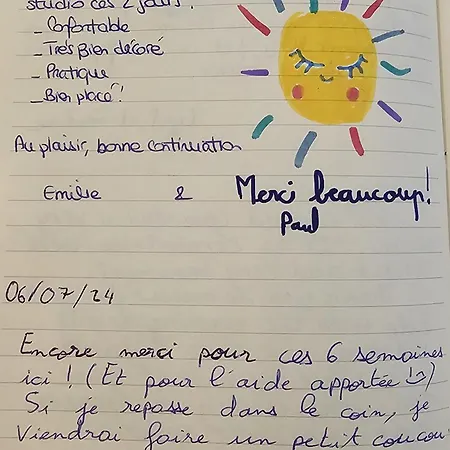 studio ces 2 jours !
_ Confortable
_ Très Bien décoré
_ Pratique
_ Bien placé !
Au plaisir, bonne continuation
Emilie & Merci beaucoup!
Paul
06/07/24
Encore merci pour ces 6 semaines
ici ! (Et pour l'aide apportée ☺)
Si je repasse dans le coin, je
viendrai faire un petit coucou